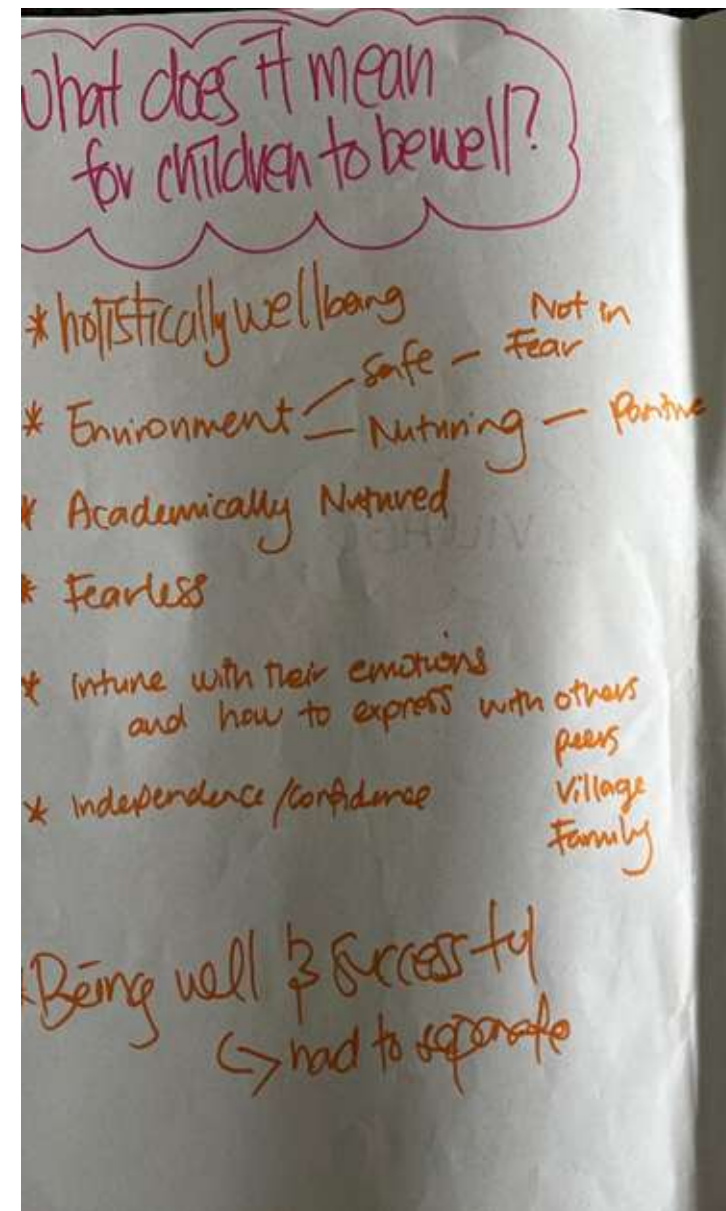 What does it mean
for children to be well?
* holistically wellbeing
* Environment - Safe - Not in Fear
- Nuturing - Positive
* Academically Nutured
* Fearless
* Intune with their emotions
and how to express with others
peers
Village
Family
* Independence / Confidence
* Being well & successful
↳ had to separate